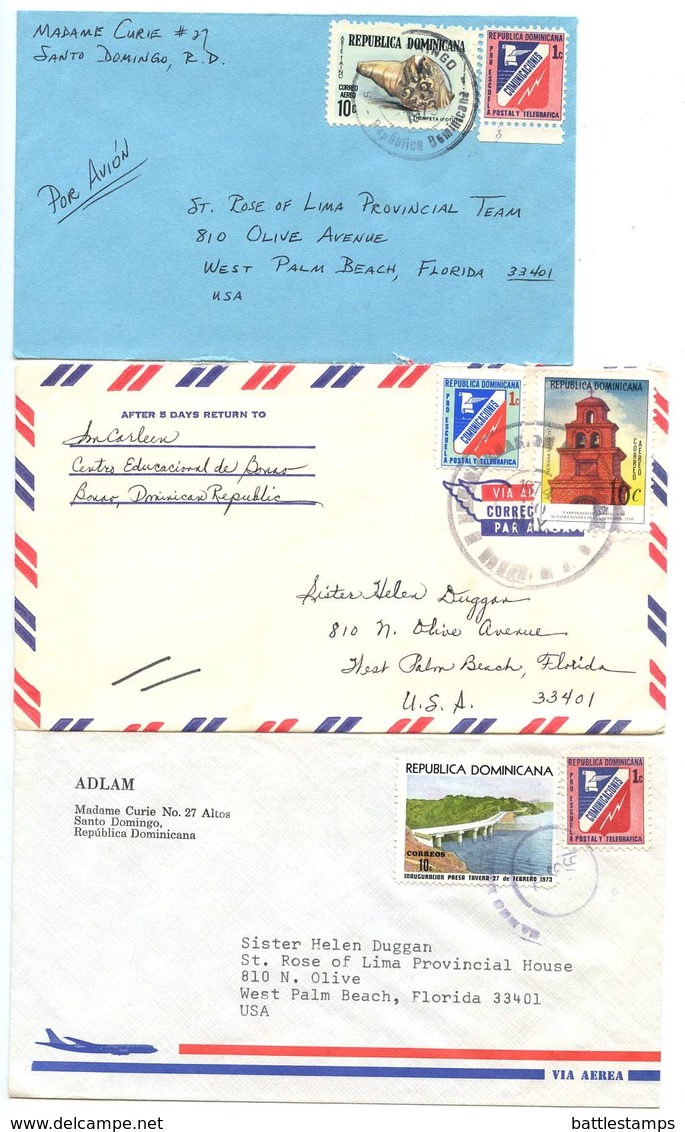 MADAME CURIE # 27
SANTO DOMINGO, R.D.
REPUBLICA DOMINICANA
ARTE TAINO
CORREO
AEREO
10c
TROMPETA (FOTUTO)
REPUBLICA DOMINICANA
1c
PRO ESCUELA
COMUNICACIONES
POSTAL Y TELEGRAFICA
República Dominicana
POR AVIÓN
ST. ROSE OF LIMA PROVINCIAL TEAM
810 OLIVE AVENUE
WEST PALM BEACH, FLORIDA 33401
USA
AFTER 5 DAYS RETURN TO
Carleen
Centro Educacional de Bonao
Bonao, Dominican Republic
REPUBLICA DOMINICANA
1c
PRO ESCUELA
COMUNICACIONES
POSTAL Y TELEGRAFICA
REPUBLICA DOMINICANA
AEREO
CORREO
10c
VIA
CORREO
PAR AVION
Sister Helen Duggan
810 N. Olive Avenue
West Palm Beach, Florida
U.S.A. 33401
ADLAM
Madame Curie No. 27 Altos
Santo Domingo,
República Dominicana
REPUBLICA DOMINICANA
CORREOS
10c
INAUGURACION PRESA TAVERA-27 de FEBRERO 1973
REPUBLICA DOMINICANA
1c
PRO ESCUELA
COMUNICACIONES
POSTAL Y TELEGRAFICA
Sister Helen Duggan
St. Rose of Lima Provincial House
810 N. Olive
West Palm Beach, Florida 33401
USA
VIA AEREA
battlestamps